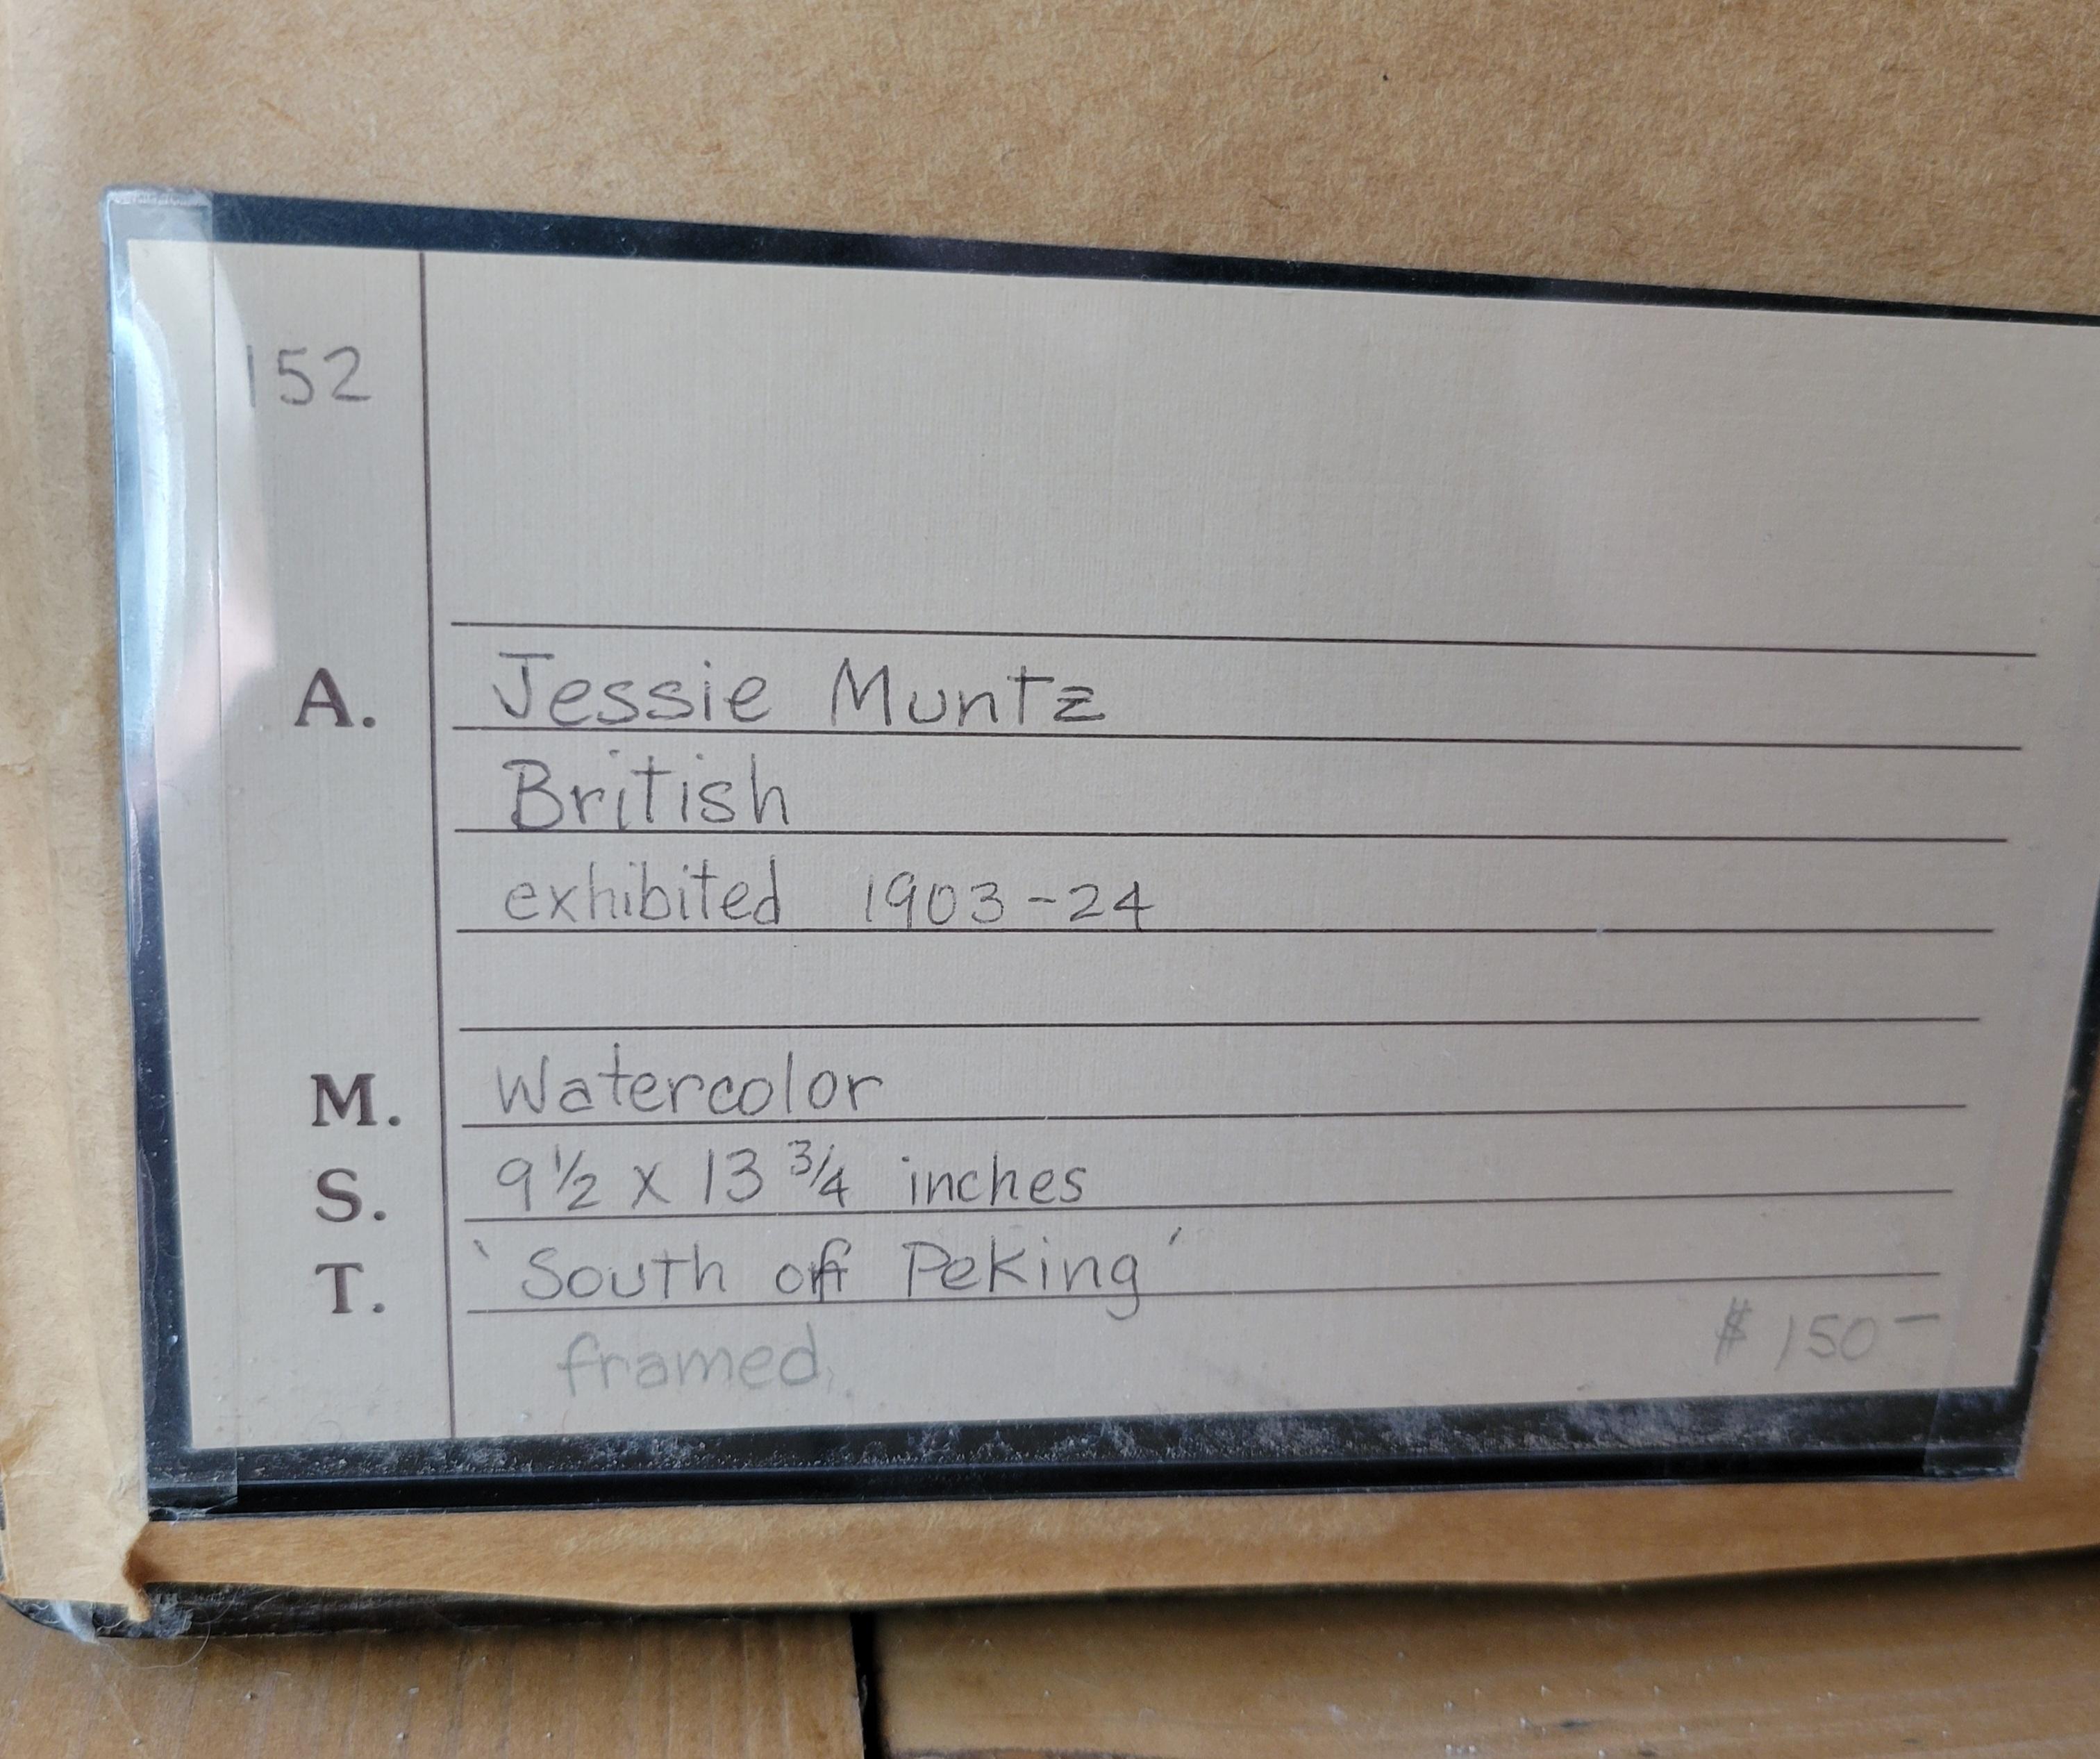 152
A. Jessie Muntz
British
exhibited 1903-24
M. Watercolor
S. 9½ x 13 ¾ inches
T. 'South off Peking'
framed $150-